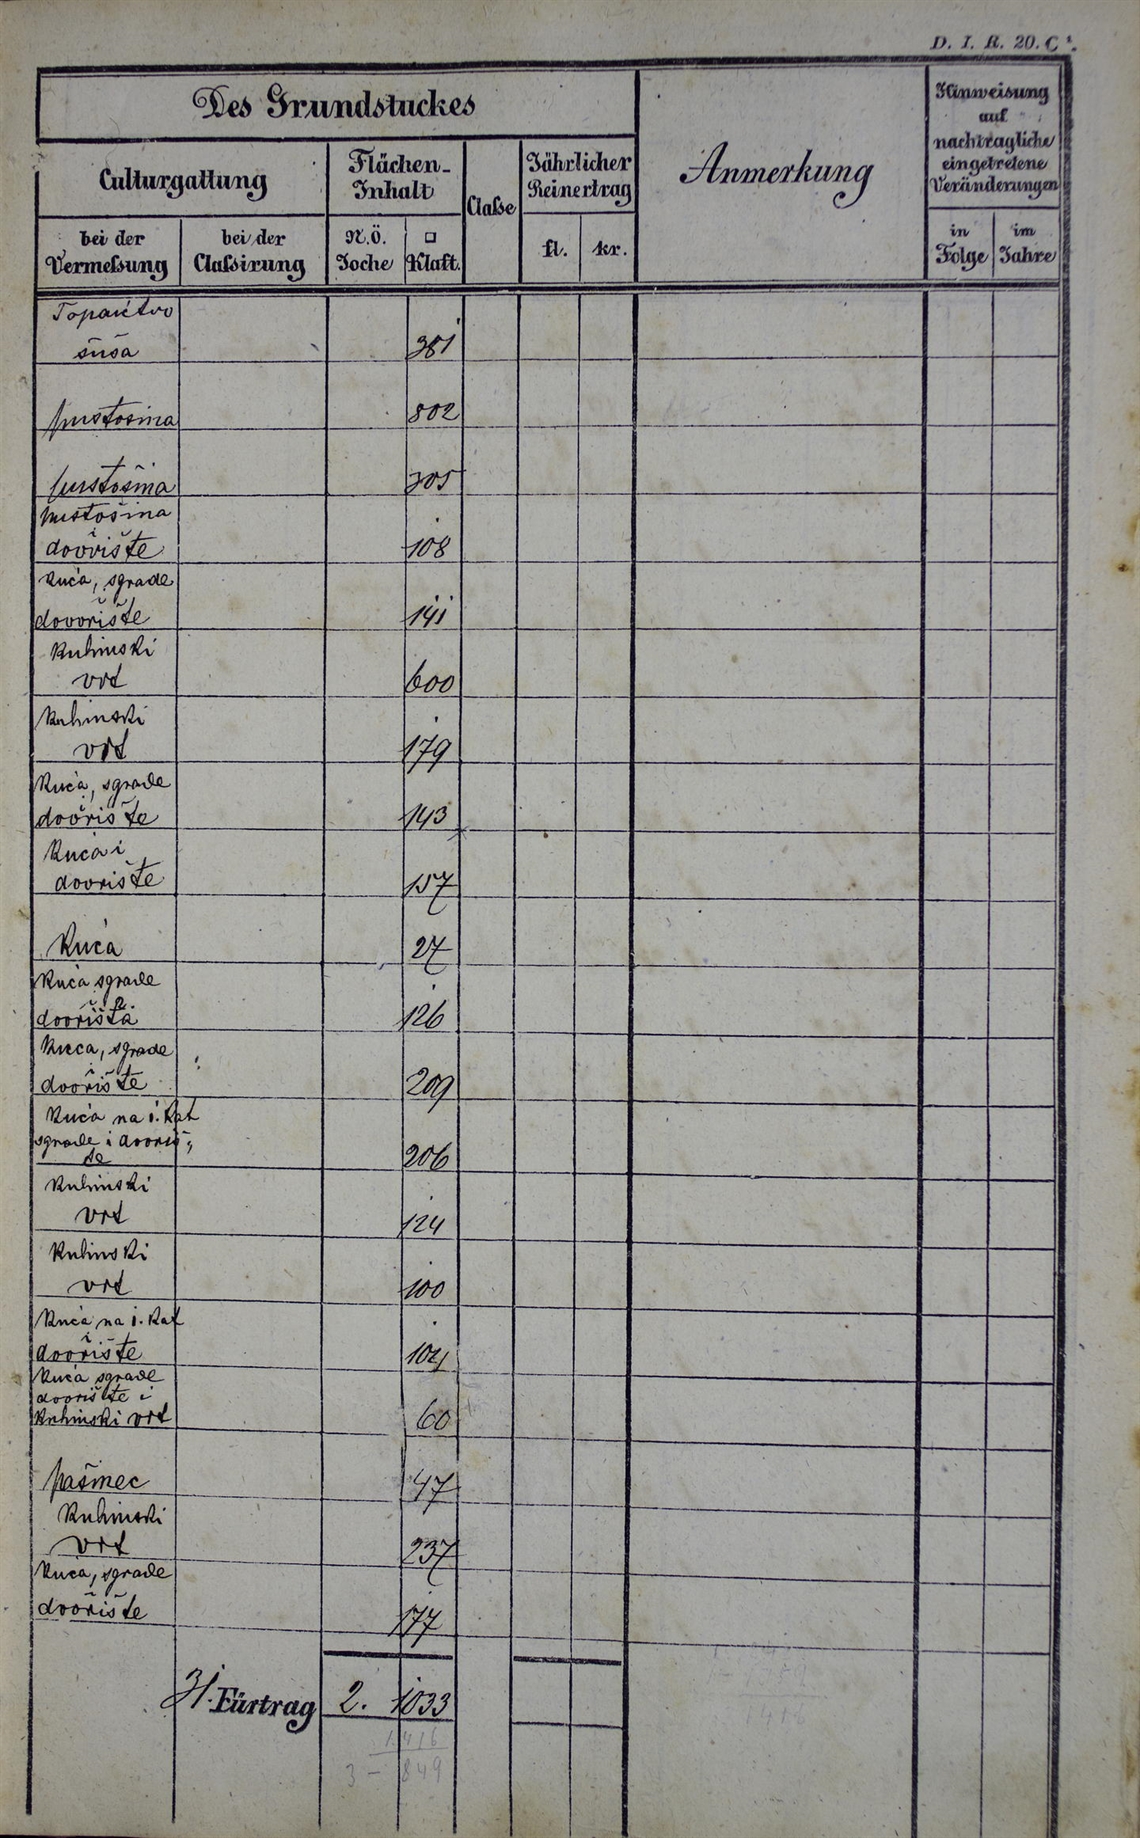 D. I. R. 20. C.
Des Grundstuckes
Culturgattung
Flächen-
Inhalt
Classe
Jährlicher
Reinertrag
Anmerkung
Hinweisung
auf
nachträgliche
eingetretene
Veränderungen
bei der
Vermessung
bei der
Classirung
N.Ö.
Joche
□
Klaft.
fl.
kr.
in
Folge
im
Jahre
šuša 381
pustošina 802
pustošina 305
pustošina
dvorište 108
Kuća, sgrade
dovorište 141
Kuhinski
vrt 600
Kuhinski
vrt 179
Kuća, sgrade
dvorište 143
Kuća i
dvorište 157
Kuća 27
Kuća sgrade
dvorišta 126
Kuća, sgrade
dvorište 209
Kuća na i. Kat
sgrade i dvoriš-
te 206
Kuhinski
vrt 124
Kuhinski
vrt 100
Kuća na i. Kat
i
dvorište 104
Kuća sgrade
dvorište i
Kuhinski vrt 60
pašinec 47
Kuhinski
vrt 237
Kuća, sgrade
dvorište 177
31. Fürtrag 2. 1033
1416
3 - 849
1418